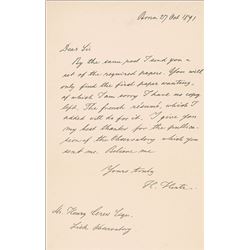 Bonn 27 Oct 1891
Dear Sir
By the same post I send you a
set of the required papers. You will
only find the first paper wanting,
of which I am sorry I have no copy
left. The french résumé, which I
added will do for it. I give you
my best thanks for the publica-
tion of the Observatory which you
sent me. Believe me
Yours truly
H.
Mr. Henry Crew Esqu.
Lick Observatory